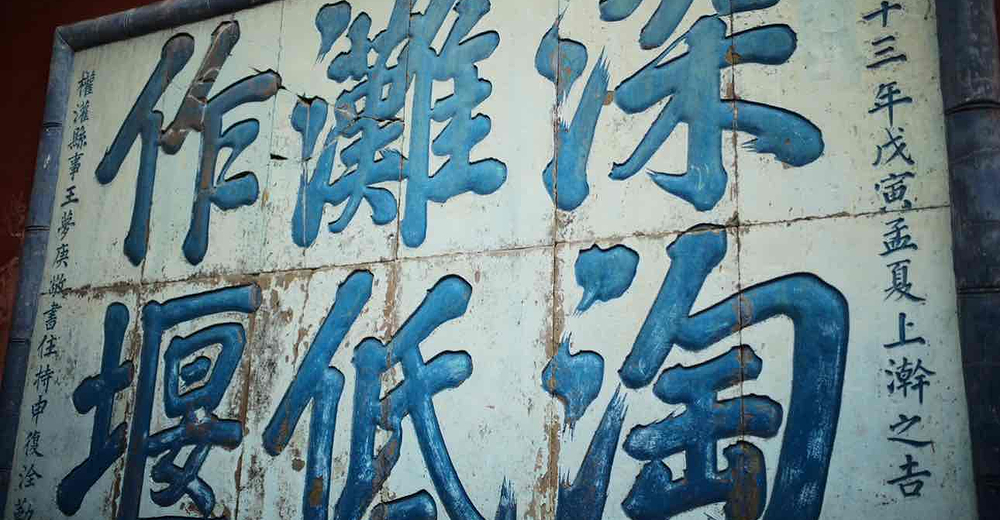 十三年戊寅孟夏上澣之吉
深淘
灘低
作堰
權灌縣事王夢庚敬書住持申復